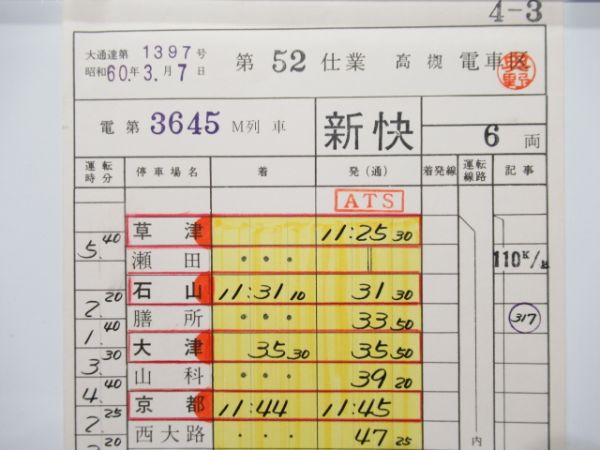 4-3
大通達第 1397号
昭和60年3.月7日
第 52 仕業 高槻 電車区
電 第 3645 M列車 新快 6 両
運転時分 停車場名 着 発(通) 着発線 運転線路 記事
ATS
草津 11:25 30
5.40
瀬田 ・・・ || 110K/
石山 11:31 10 31 30
2.20
膳所 ・・・ 33 50 317
1.40
大津 35 30 35 50
3.30
山科 ・・・ 39 20
4.40
京都 11:44 11:45
2.25
西大路 ・・・ 47 25 内
2.20